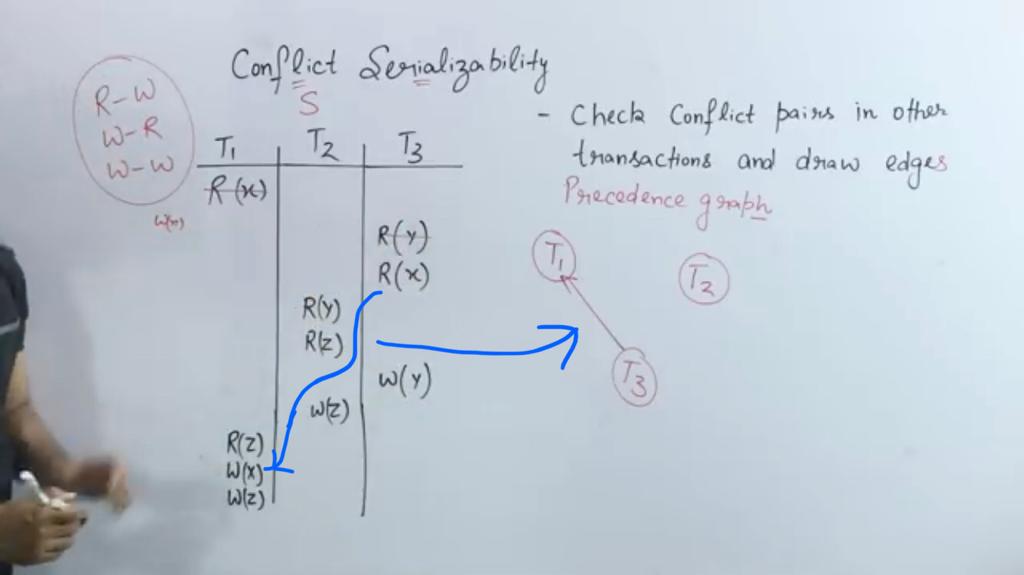 Conflict Serializability
S
R-W
W-R
W-W
W(x)
T1 T2 T3
R(x)
R(y)
R(x)
R(y)
R(z)
W(y)
W(z)
R(z)
W(x)
W(z)
- Check Conflict pairs in other
transactions and draw edges
Precedence graph
T1
T2
T3